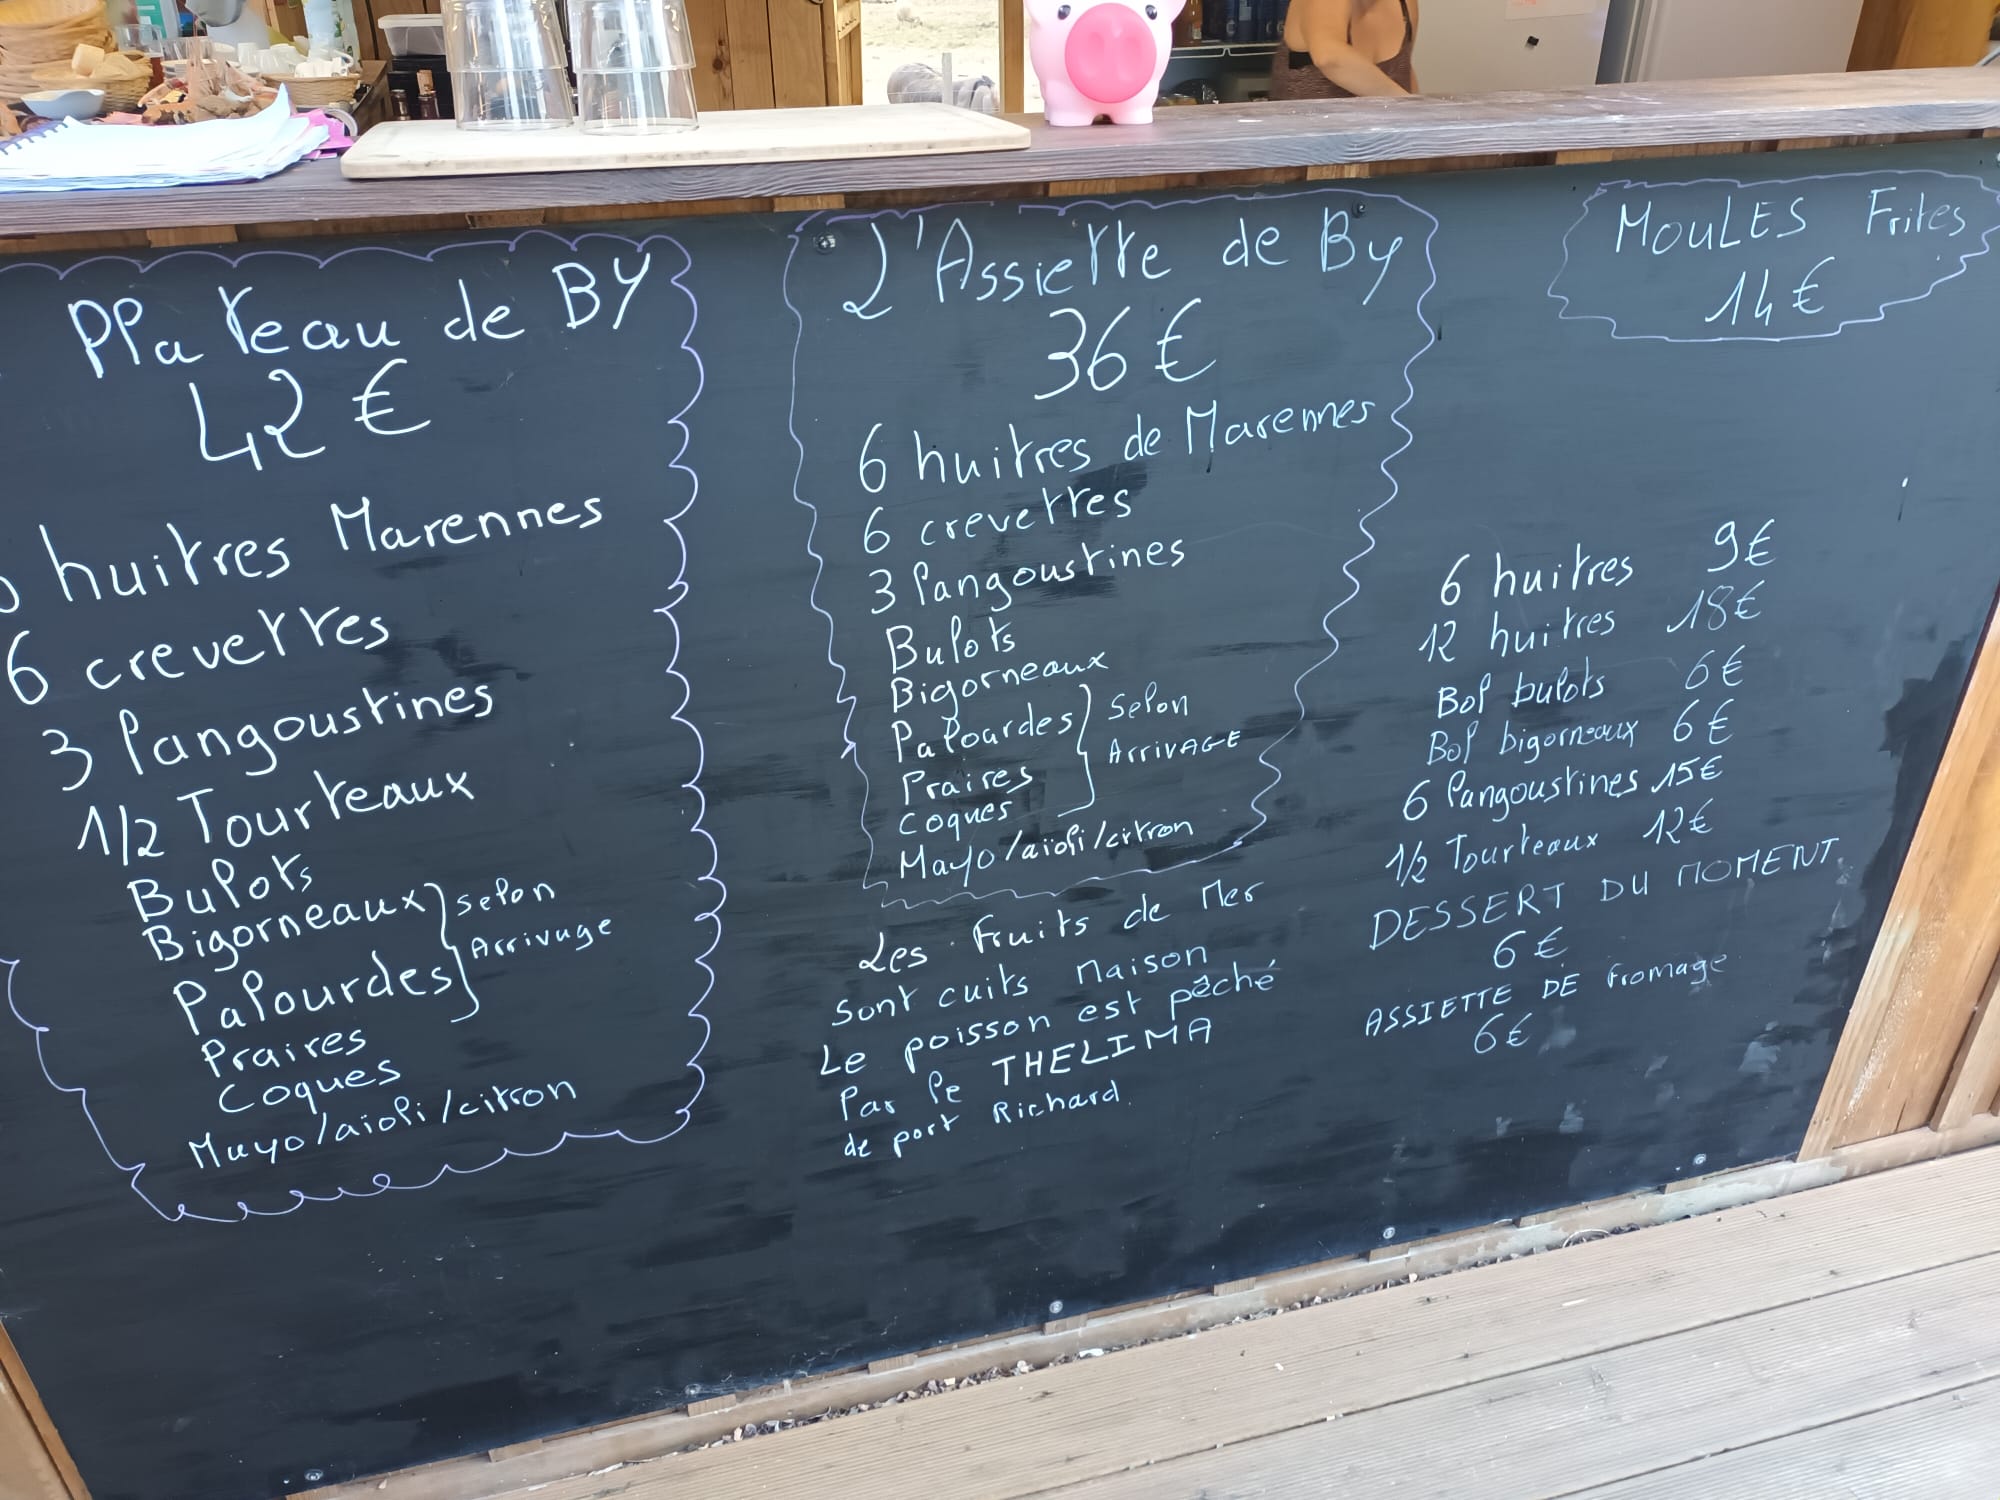 PLateau de BY
42€
huitres Marennes
6 crevettes
3 langoustines
1/2 Tourteaux
Bulots
Bigorneaux
Palourdes
selon
Arrivage
Praires
Coques
Mayo/aioli/citron
L'Assiette de By
36€
6 huitres de Marennes
6 crevettes
3 langoustines
Bulots
Bigorneaux
Palourdes
Praires
Coques
selon
ARRIVAGE
Mayo/aïoli/citron
Les fruits de Mer
sont cuits Maison
Le poisson est pêché
Par le THELIMA
de port Richard.
MOULES Frites
14€
6 huitres 9€
12 huitres 18€
Bol bulots 6€
Bol bigorneaux 6€
6 langoustines 15€
1/2 Tourteaux 12€
DESSERT DU MOMENT
6€
ASSIETTE DE fromage
6€